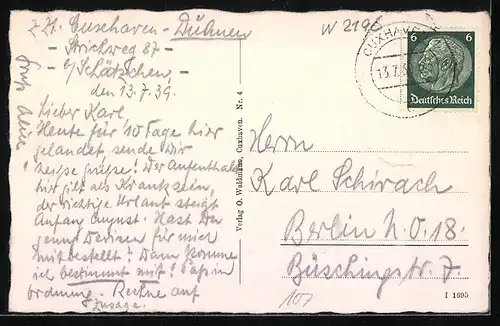 z. Zt. Cuxhaven-Duhnen
- Strichweg 87 -
b/Schätschen
den 13.7.39.
Lieber Karl,
Heute für 10 Tage hier
gelandet sende Dir
heiße Grüße! Der Aufenthalt
hier gilt als Kranksein,
der richtige Urlaub steigt
Anfang August. Hast Du
genug Devisen für mich
mitbestellt? Dann komme
ich bestimmt mit! Paß in
Ordnung. Rechne auf
Zusage.
Gruß
W 2190
CUXHAVEN
13.7.3
6 6
Deutsches Reich
Verlag O. Waldmann, Cuxhaven. Nr. 4
Herrn
Karl Schirach
Berlin N.O. 18.
Büschingstr. 7.
107
I 1895